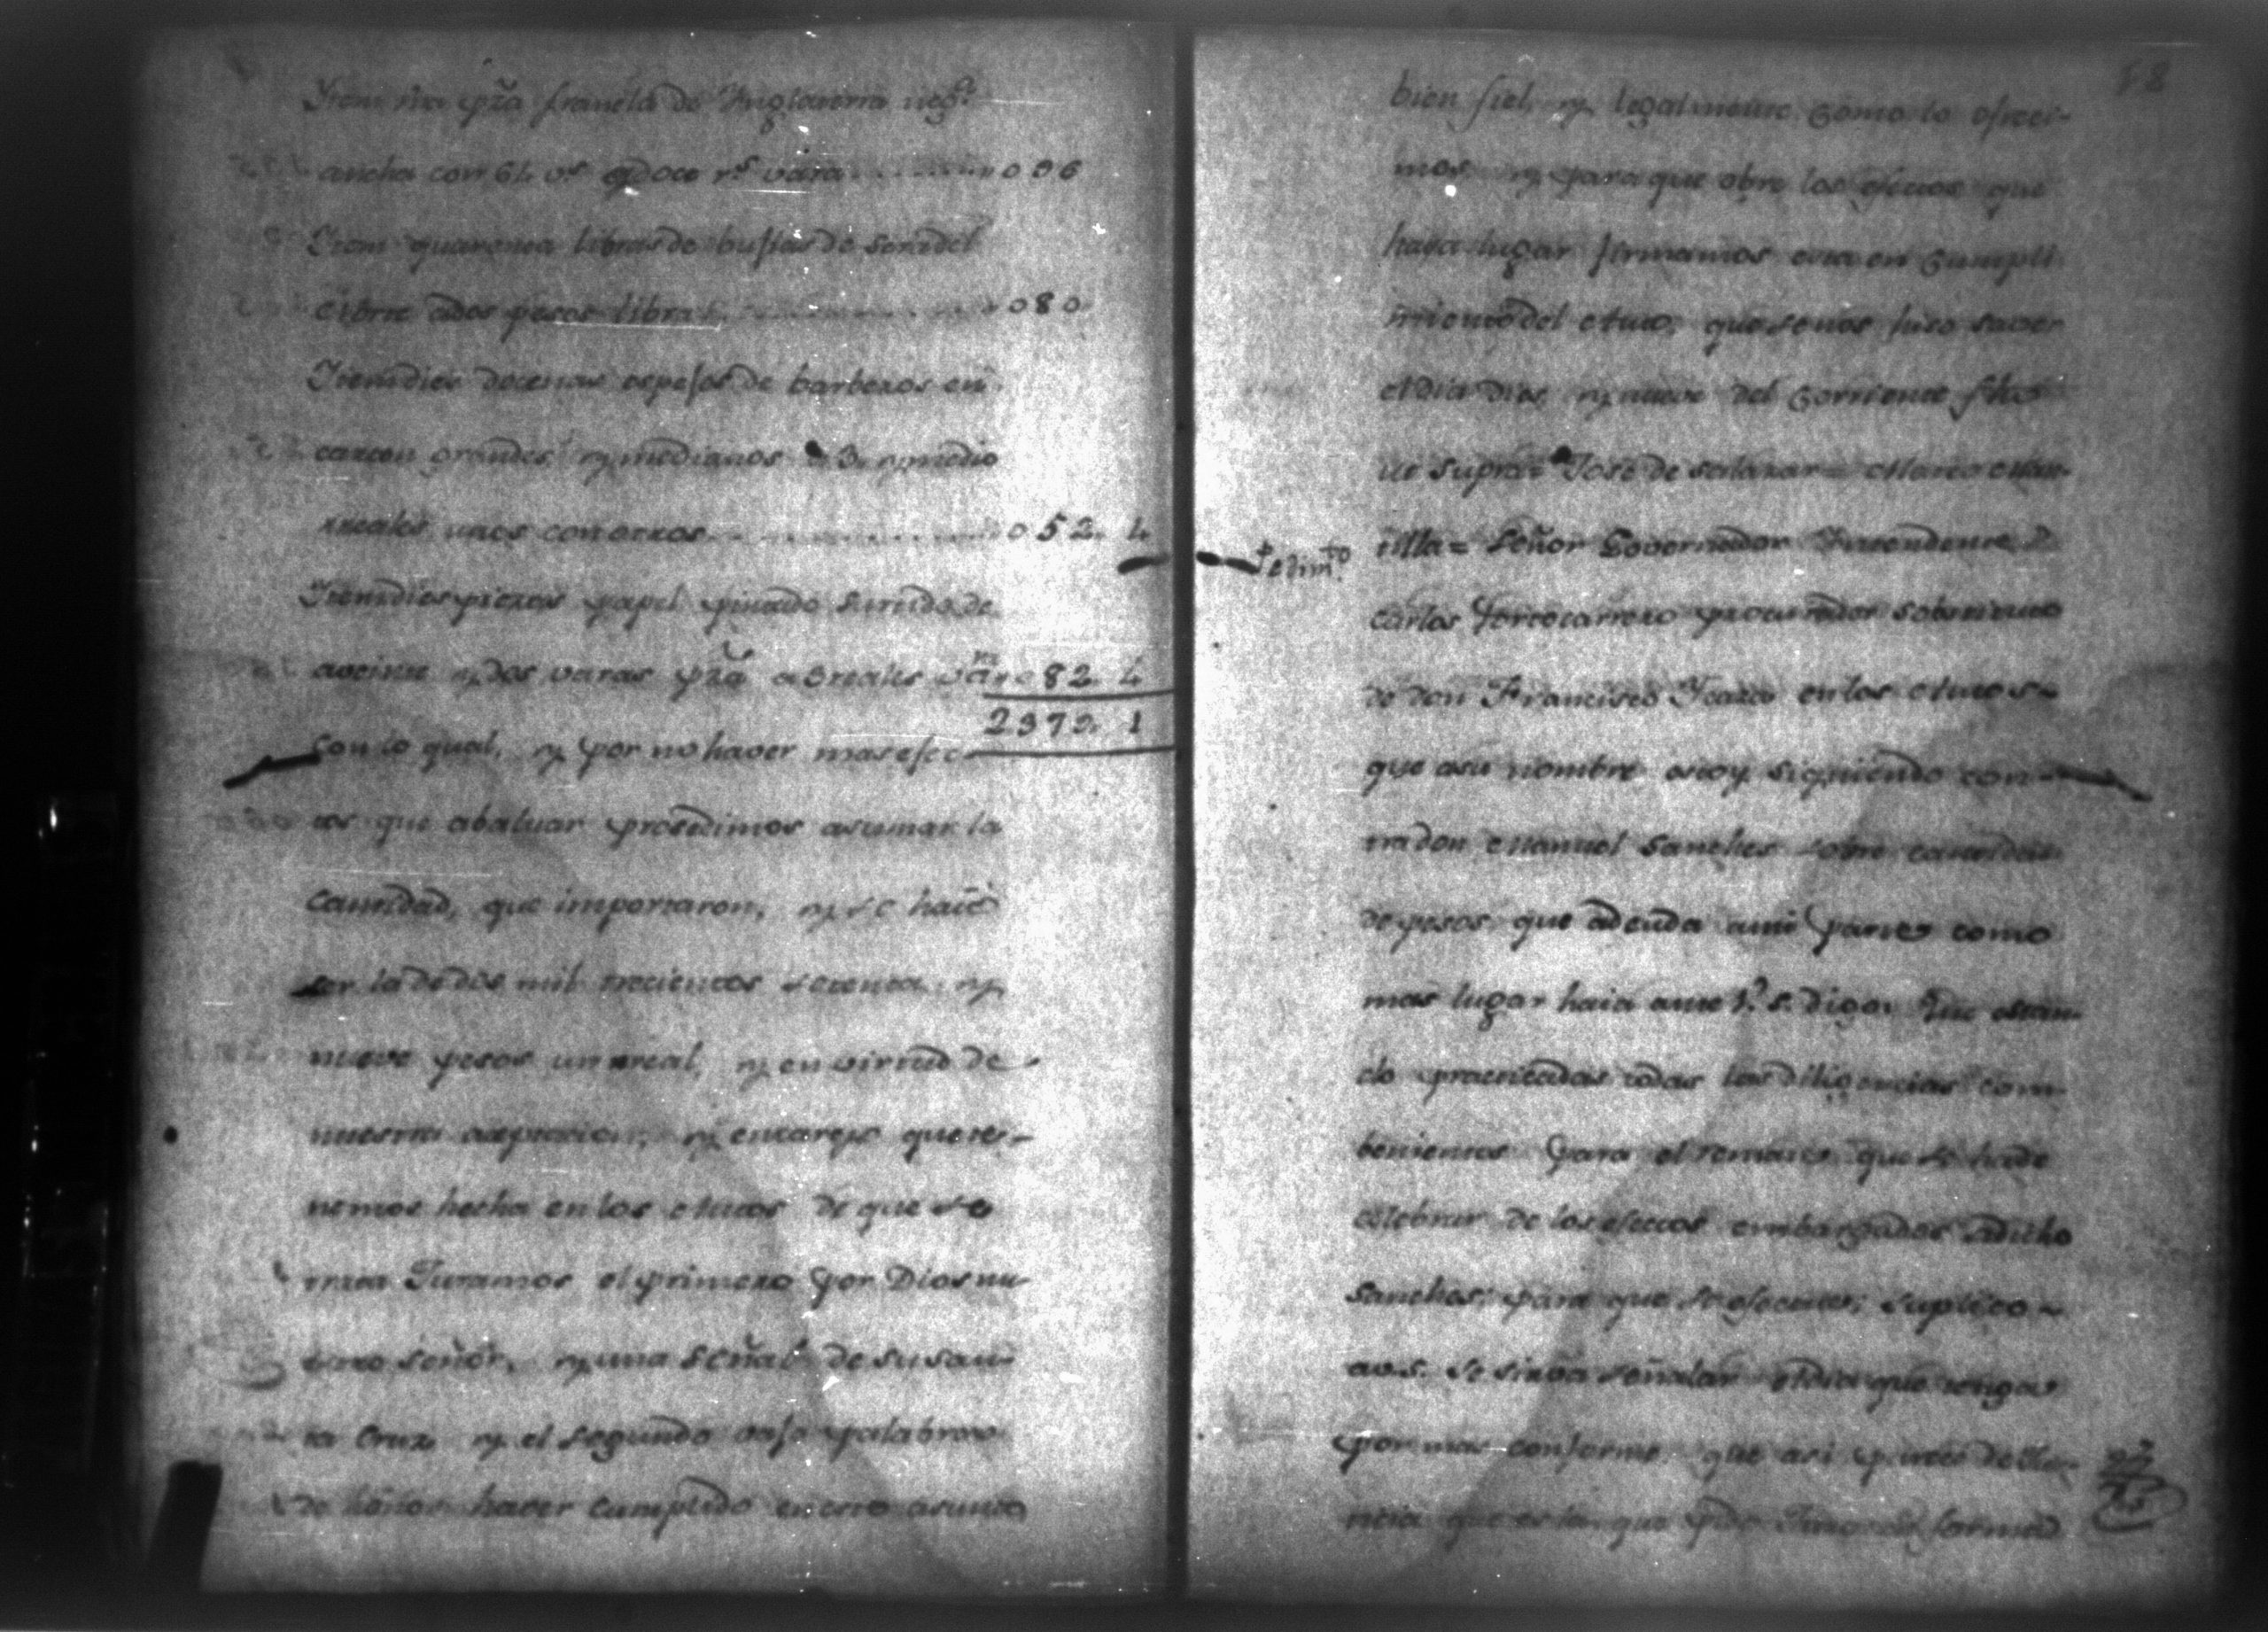 Item una pza franela de Ynglaterra negª
ancha con 64 vs a doce rs vara ........ 096
Item quarenta libras de bujias de
a dos pesos libra ........ 080
Item dies docenas espejos de barberos en
carton grandes, y medianos a 3. y medio
rreales unos con otros ........ 052. 4
Item dies piezas papel pintado surtido de
a veinte y dos varas pza a 3 reales va 082. 4
2379. 1
Con lo qual, y por no haver mas efec-
tos que abaluar prosedimos a sumar la
cantidad, que importaron, y se halló
ser la de dos mil trecientos setenta y
nueve pesos un rreal, y en virtud de
nuestra aceptacion, y encargo que te-
nemos hecha en los Autos de que se
trata Juramos el primero por Dios nu-
estro señor, y una señal de su san-
ta Cruz y el segundo vajo palabra
de honor haver cumplido en este asunto
58
bien fiel, y legalmente como lo ofreci-
mos y para que obre los efectos que
haya lugar firmamos esta en cumpli-
miento del Auto, que se nos hiso saver
el dia dies y nueve del corriente fho
ut supra = José de Salazar = Marco Man-
Pedimto
tilla = Señor Governador Yntendente =
Carlos Portocarrero procurador sostituto
de don Francisco Ycaza en los Autos
que a su nombre estoy siguiendo con-
tra don Manuel Sanches sobre cantidad
de pesos que adeuda a mi parte como
mas lugar haia ante V. S. Digo: Que estan-
do practicadas todas las diligencias com-
benientes para el remate que se ha de
celebrar de los efectos embargados a dicho
Sanches; para que se efectue; suplico
a V.S. se sirva señalar el dia que tenga
por mas conforme que asi parece de Jus-
ticia que es la que pido Juro en forma